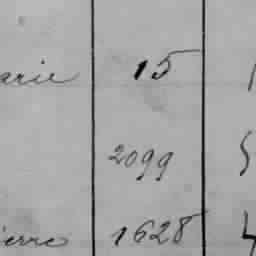 arie 15
2099
ierre 1628